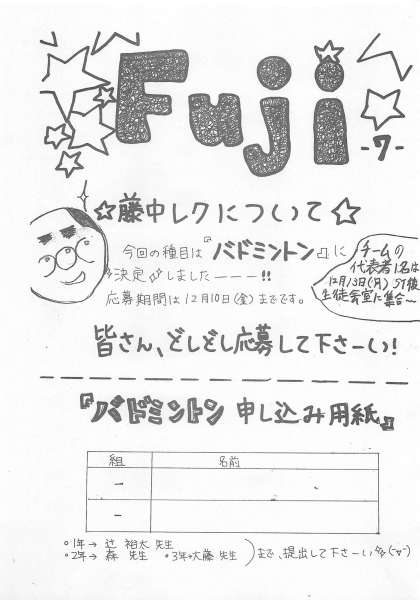 Fuji
-7-
☆藤中レクについて☆
今回の種目は『バドミントン』に
決定しました ーーー!!
応募期間は12月10日(金)までです。
チームの
代表者1名は
12月13日(月) ST後
生徒会室に集合～
皆さん、どしどし応募して下さーい!
『バドミントン 申し込み用紙』
組 名前
ー
ー
•1年→ 辻 裕太 先生
•2年→ 森 先生 •3年→大藤 先生
まで、提出して下さーい